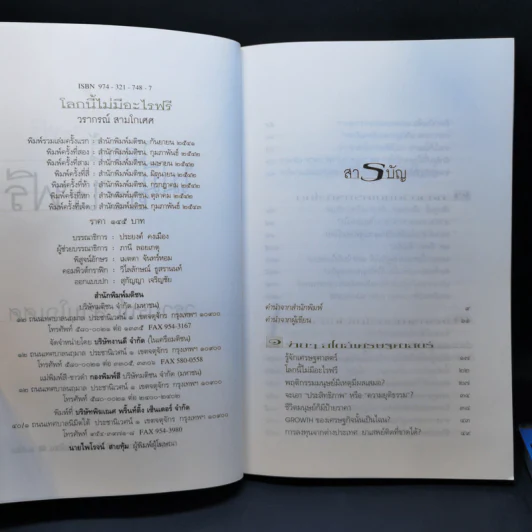 ISBN 974-321-748-7
โลกนี้ไม่มีอะไรฟรี
วรากรณ์ สามโกเศศ
พิมพ์รวมเล่มครั้งแรก : สำนักพิมพ์มติชน, กันยายน ๒๕๔๑
พิมพ์ครั้งที่สอง : สำนักพิมพ์มติชน, กุมภาพันธ์ ๒๕๔๒
พิมพ์ครั้งที่สาม : สำนักพิมพ์มติชน, เมษายน ๒๕๔๒
พิมพ์ครั้งที่สี่ : สำนักพิมพ์มติชน, มิถุนายน ๒๕๔๒
พิมพ์ครั้งที่ห้า : สำนักพิมพ์มติชน, กรกฎาคม ๒๕๔๒
พิมพ์ครั้งที่หก : สำนักพิมพ์มติชน, ตุลาคม ๒๕๔๒
พิมพ์ครั้งที่เจ็ด : สำนักพิมพ์มติชน, กุมภาพันธ์ ๒๕๔๓
ราคา ๑๔๕ บาท
บรรณาธิการ : ประยงค์ คงเมือง
ผู้ช่วยบรรณาธิการ : ภานี ลอยเกตุ
พิสูจน์อักษร : เมตตา จันทร์หอม
คอมพิวต์กราฟิก : วิไลลักษณ์ ธูสรานนท์
ออกแบบปก : สุกัญญา เจริญชัย
สำนักพิมพ์มติชน
บริษัทมติชน จำกัด (มหาชน)
๑๒ ถนนเทศบาลนฤมาล ประชานิเวศน์ ๑ เขตจตุจักร กรุงเทพฯ ๑๐๙๐๐
โทรศัพท์ ๕๘๐-๐๐๒๑ ต่อ FAX 954-3167
จัดจำหน่ายโดย บริษัทงานดี จำกัด (ในเครือมติชน)
ถนนเทศบาลนฤมาล ประชานิเวศน์ ๑ เขตจตุจักร กรุงเทพฯ ๑๐๙๐๐
FAX 580-0558
แม่พิมพ์สี-ขาวดำ กองพิมพ์สี บริษัทมติชน จำกัด (มหาชน)
๑๒ ถนนเทศบาลนฤมาล ประชานิเวศน์ ๑ เขตจตุจักร กรุงเทพฯ ๑๐๙๐๐
โทรศัพท์ ๕๘๐-๐๐๒๑ ต่อ
พิมพ์ที่ บริษัทพิฆเณศ พริ้นท์ติ้ง เซ็นเตอร์ จำกัด
ถนนเทศบาลนิมิตใต้ ประชานิเวศน์ ๑ เขตจตุจักร กรุงเทพฯ ๑๐๙๐๐
โทรศัพท์ FAX 954-3980
นายไพโรจน์ สายทุ้ม ผู้พิมพ์ผู้โฆษณา
สารบัญ
คำนำจากสำนักพิมพ์
คำนำจากผู้เขียน
รู้จักเศรษฐศาสตร์
โลกนี้ไม่มีอะไรฟรี
พฤติกรรมมนุษย์มีเหตุมีผลเสมอ?
จะเอา "ประสิทธิภาพ" หรือ "ความยุติธรรม"?
ชีวิตมนุษย์ก็มีป้ายราคา
GROWTH ของเศรษฐกิจนั้นเป็นไฉน?
การลงทุนจากต่างประเทศ: ยาเสพติดที่ขาดได้?